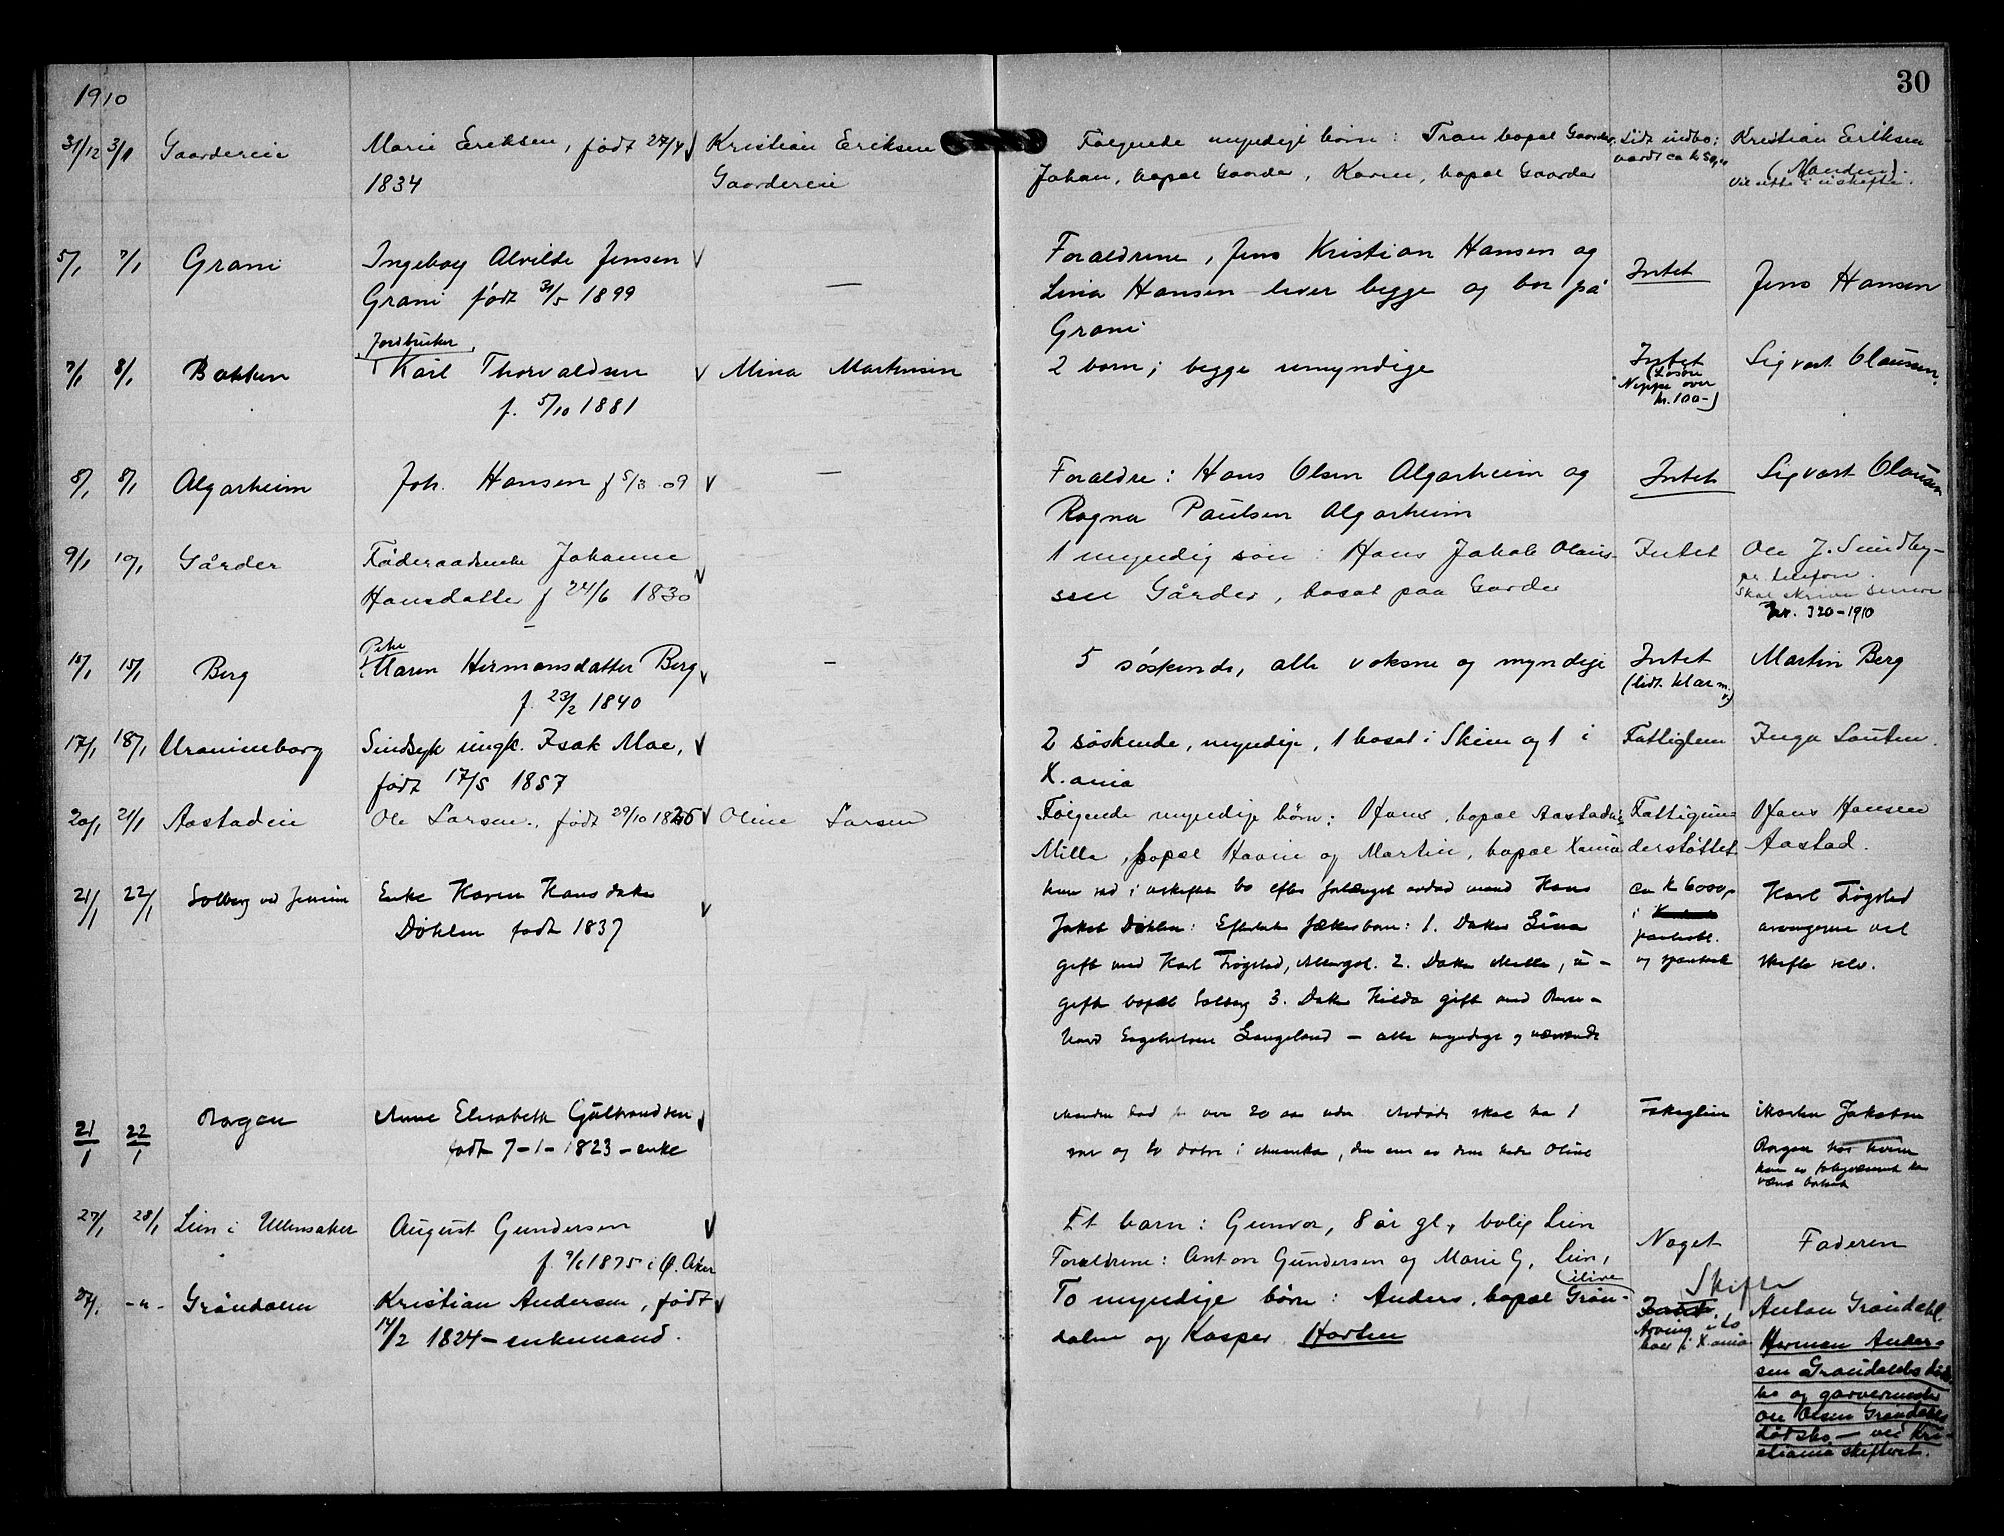 1910
30
31/12 3/1 Gaardereie Marie Eriksen, født 27/4 Kristian Eriksen Følgende myndige børn: Tran bopæl Gaarder, Lidt indbo: Kristian Eriksen
1834 Gaardereie Johan, bopæl Gaarder, Karen, bopæl Gaarder værdt ca k 50,- (Manden).
Vil sitte i uskifte.
5/1 7/1 Grani Ingeborg Alvilde Jensen — Forældrene, Jens Kristian Hansen og Intet Jens Hansen
Grani født 31/5 1899 Lina Hansen lever begge og bor på
Grani
Jordbruker
7/1 8/1 Bakken Karl Thorvaldsen Mina Martinsen 2 barn; begge umyndige Intet Sigvart Clausen.
f. 5/10 1881 (Løsøre
Neppe over
kr. 100-)
8/1 8/1 Algarheim Joh. Hansen f 5/3 09 — Forældre: Hans Olsen Algarheim og Intet Sigvart Clausen
Ragna Paulsen Algarheim
9/1 10/1 Gårder Føderaadsenke Johanne 1 myndig søn: Hans Jakob Olaus- Intet Ole J. Sundby-
Hansdatter f 24/6 1830 sen Gårder, bosat paa Garder pr. telefon.
Skal skrive senere
Jnr. 320-1910
Pike
15/1 15/1 Berg Maren Hermansdatter Berg - 5 søskende, alle voksne og myndige Intet Martin Berg
f. 23/2 1840 (lidt klær m. v.)
17/1 18/1 Uranienborg Sindsyk ungk. Isak Moe, 2 søskende, myndige, 1 bosat i Skien og 1 i Fattiglem Inga Lauten.
født 17/5 1857 X.ania
20/1 21/1 Aastadeie Ole Larsen, født 29/10 1826 Oline Larsen Følgende myndige børn: Hans, bopæl Aastadeie Fattigun- Hans Hansen
Milla, bopæl Hovin og Martin, bopæl Xania derstøttet Aastad.
21/1 22/1 Solberg ved Jensrin Enke Karen Hansdatter hun sad i uskiftet bo efter forlængst avdød mand Hans ca k 6000,- Karl Frøgstad
Døhlen født 1837 Jakob Døhlen: Efterlater fællesbarn: 1. Datter Lina i arvingerne vil
gift med Karl Frøgstad, 2. Datter Milla, u- og sparebank skifte selv.
gift bopæl Solberg 3. Datter Hilda gift med
Langeland — alle myndige og nærværende
21/1 22/1 Borgen Anne Elisabeth Gulbrandsen Manden død for over 20 aar siden Avdøde skal ha 1 Fattiglem Jakobsen
født 7-1-1823 – enke søn og to døtre i Amerika, den ene av dem hete Oline Borgen hos hvem
hun av fattigvæsenet har
været bortsat
27/1 28/1 Lien i Ullensaker August Gundersen Et barn: Gunvor, 8 år gl., bolig Lien Noget Faderen
f. 9/6 1875 i Ø. Aker Forældrene: Anton Gundersen og Marie G, Lien,
ilive
Skifte
27/1 -"- Grøndalen Kristian Andersen, født To myndige børn: Anders, bopæl Grøn- Intet Anton Grøndahl.
14/2 1824 – enkemand. dalen og Kasper Horten Arving i to boer i X.ania
Herman Ander-
sen Grøndahls døds-
bo og garvermester
Ole Olsen Grøndahls
dødsbo — ved Kri-
stiania skifteret.